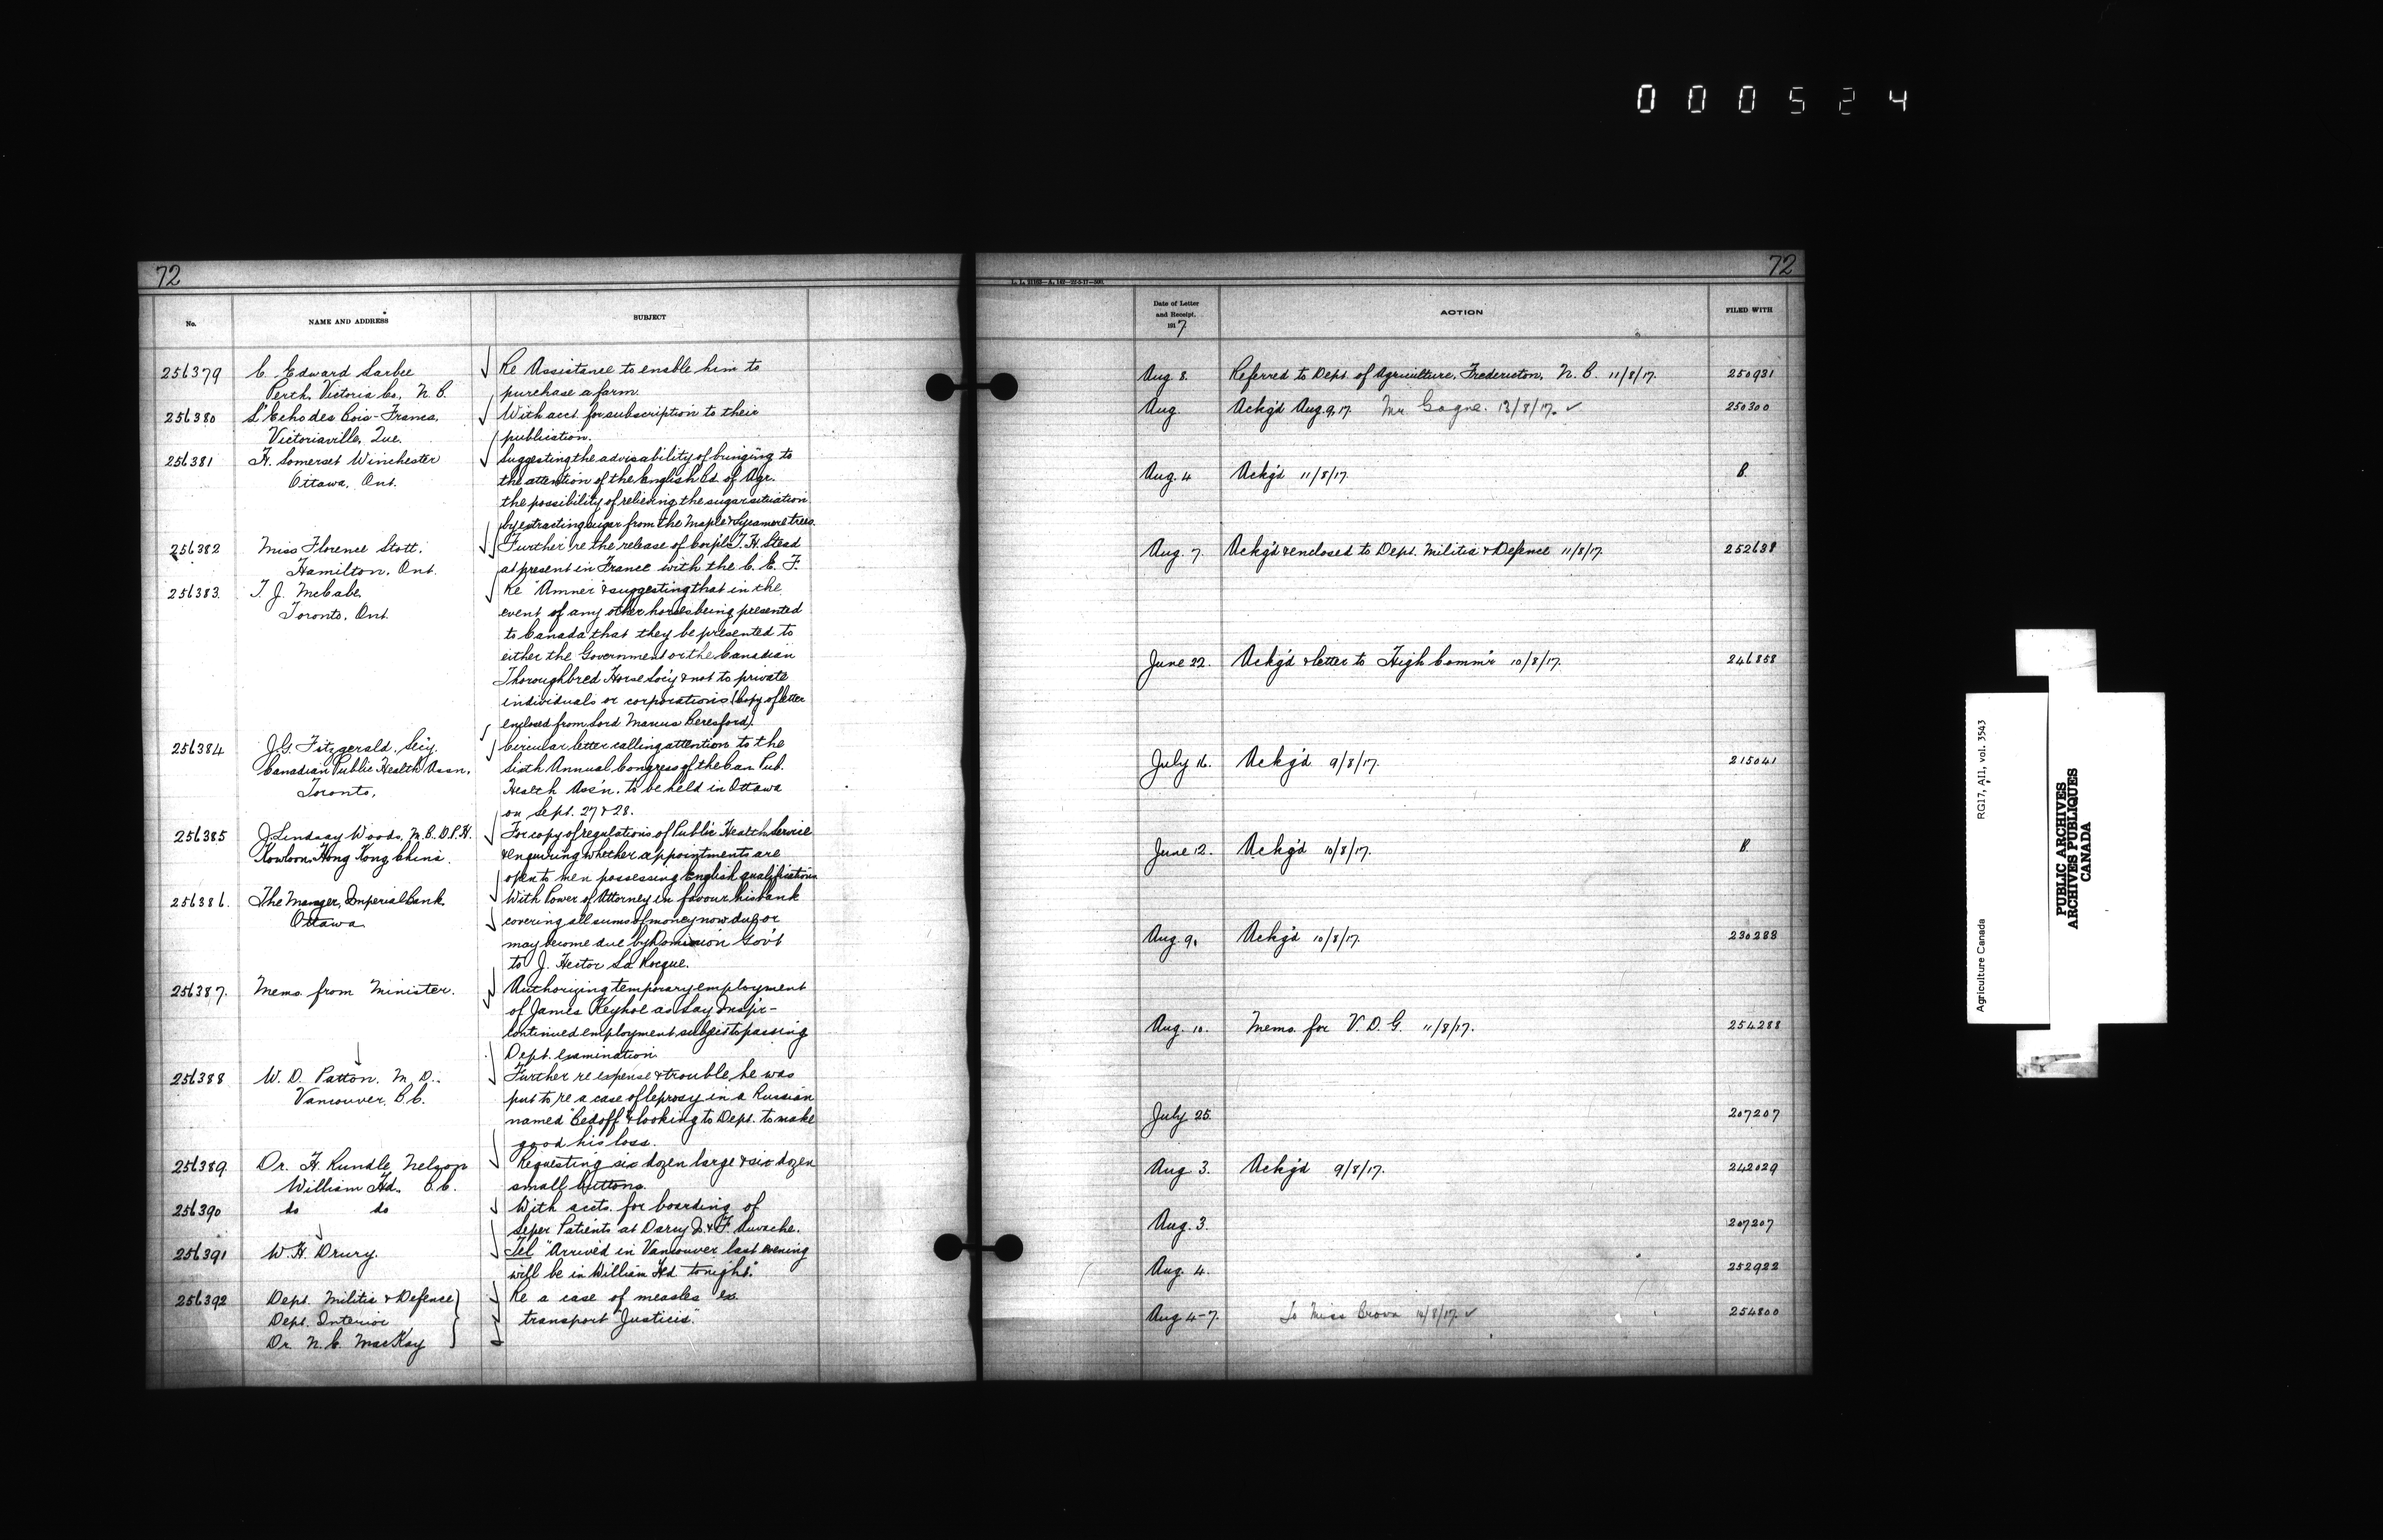 000524
72
No.
NAME AND ADDRESS
SUBJECT
256379 C. Edward Sarbee Re Assistance to enable him to
Perth, Victoria Co., N.B. purchase a farm.
256380 L'Echo des Bois-Francs, With acct. for subscription to their
Victoriaville, Que. publication.
256381 H. Somerset Winchester Suggesting the advisability of bringing to
Ottawa, Ont. the attention of the English Bd of Agr.
the possibility of relieving the sugar situation
by extracting sugar from the Maple & Sycamore trees.
256382 Miss Florence Stott, Further re the release of Corpl. T. H. Stead
Hamilton, Ont. at present in France with the C. E. F.
256383 T. J. McCabe, Re "Amner" & suggesting that in the
Toronto, Ont event of any other horses being presented
to Canada that they be presented to
either the Government or the Canadian
Thoroughbred Horse Soc'y & not to private
individuals or corporations (Copy of letter
enclosed from Lord Marcus Beresford).
256384 J.G. Fitzgerald, Sec'y. Circular letter calling attention to the
Canadian Public Health Assn, Sixth Annual Congress of the Can Pub.
Toronto, Health Assn. to be held in Ottawa
on Sept. 27 & 28.
256385 J. Lindsay Woods, M.B. D.P.H. For copy of regulations of Public Health Service
Kowloon, Hong Kong China. & enquiring whether appointments are
open to men possessing English qualifications
256386. The Manger, Imperial Bank With Power of Attorney in favour his bank
Ottawa covering all sums of money now due or
may become due by Dominion Gov't
to J. Hector La Rocque.
256387. Memo. from Minister. Authorizing temporary employment
of James Keyhoe as Lay Insp'r-
Continued employment subject to passing
Dept. examination.
256388 W. D. Patton, M. D.. Further re expense & trouble he was
Vancouver, B.C. put to re a case of leprosy in a Russian
named "Bedoff" & looking to Dept. to make
good his loss.
256389 Dr. H. Rundle Nelson Requesting six dozen large & six dozen
William Hd. B.C. small buttons.
256390 do do With accts. for boarding of
Leper Patients at Darcy I. &
256391 W. H. Drury. Tel "Arrived in Vancouver last evening
will be in William Hd tonight."
256392 Dept. Militia & Defence Re a case of measles ex.
Dept. Interior transport "Justicia."
Dr. N. E. MacKay
72
L. L. 21163—A. 162—22-5-17—500.
Date of Letter
and Receipt.
1917
ACTION
FILED WITH
Aug 8. Referred to Dept. of Agriculture, Fredericton, N. B. 11/8/17. 250931
Aug. Ackg'd Aug. 9, 17. Mr Gagne. 13/8/17. ✓ 250300
Aug. 4 Ackg'd 11/8/17. B.
Aug. 7. Ackg'd & enclosed to Dept. Militia & Defence 11/8/17. 252638
June 22. Ackg'd & letter to High Comm'r 10/8/17. 246858
July 16. Ackg'd 9/8/17. 215041
June 12. Ackg'd 10/8/17. B.
Aug. 9. Ackg'd 10/8/17. 230288
Aug. 10. Memo. for V. D. G. 11/8/17. 254288
July 25. 207207
Aug 3. Ackg'd 9/8/17. 242029
Aug. 3. 207207
Aug. 4. 252922
Aug 4-7. To Miss 14/8/17 ✓ 254800
Agriculture Canada RG17, A11, vol. 3543
PUBLIC ARCHIVES
ARCHIVES PUBLIQUES
CANADA